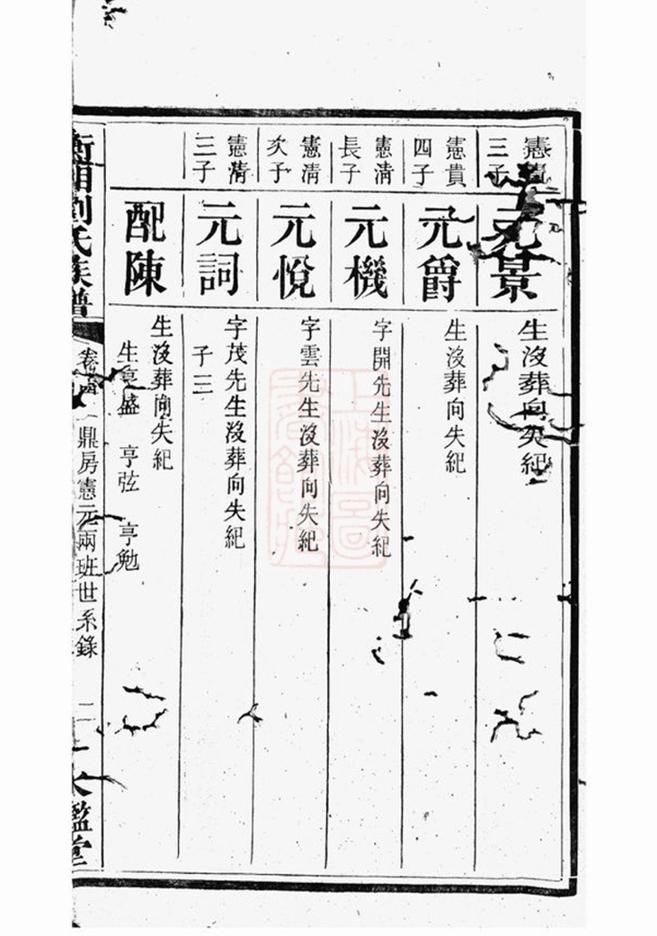 憲貴三子
元景
生沒葬向失紀
憲貴四子
元爵
生沒葬向失紀
憲清長子
元機
字開先生沒葬向失紀
憲清次子
元悅
字雲先生沒葬向失紀
憲清三子
元詞
字茂先生沒葬向失紀
子三
配陳
生沒葬向失紀
生 盛 亨弦 亨勉
衡湘劉氏族譜
卷 鼎房憲元兩班世系錄
二
鑑堂